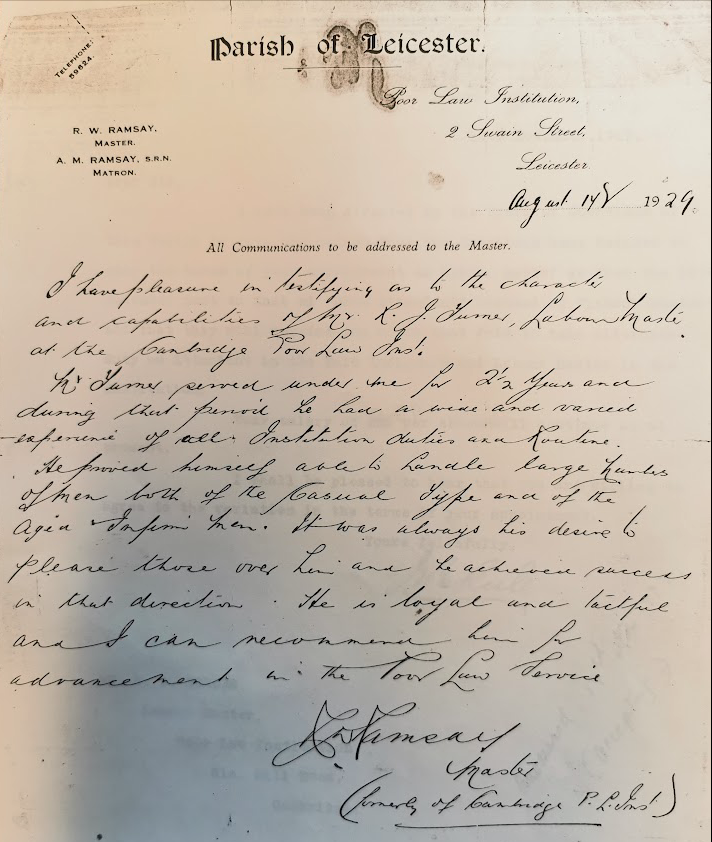 TELEPHONE:
59624.
Parish of Leicester.
Poor Law Institution,
2 Swain Street,
Leicester
R. W. RAMSAY,
MASTER.
A. M. RAMSAY, S.R.N.
MATRON.
August 14 1929.
All Communications to be addressed to the Master.
I have pleasure in testifying as to the character
and capabilities of Mr. R. J. Turner, Labour Master
at the Cambridge Poor Law Inst.
Mr Turner served under me for 2½ Years and
during that period he had a wide and varied
experience of all Institution duties and Routine.
He proved himself able to handle large Numbers
of men both of the Casual Type and of the
Aged & Infirm Men. It was always his desire to
please those over him and he achieved success
in that direction. He is loyal and tactful
and I can recommend him for
advancement in the Poor Law Service
RW Ramsay
Master
(formerly of Cambridge P. L. Inst)